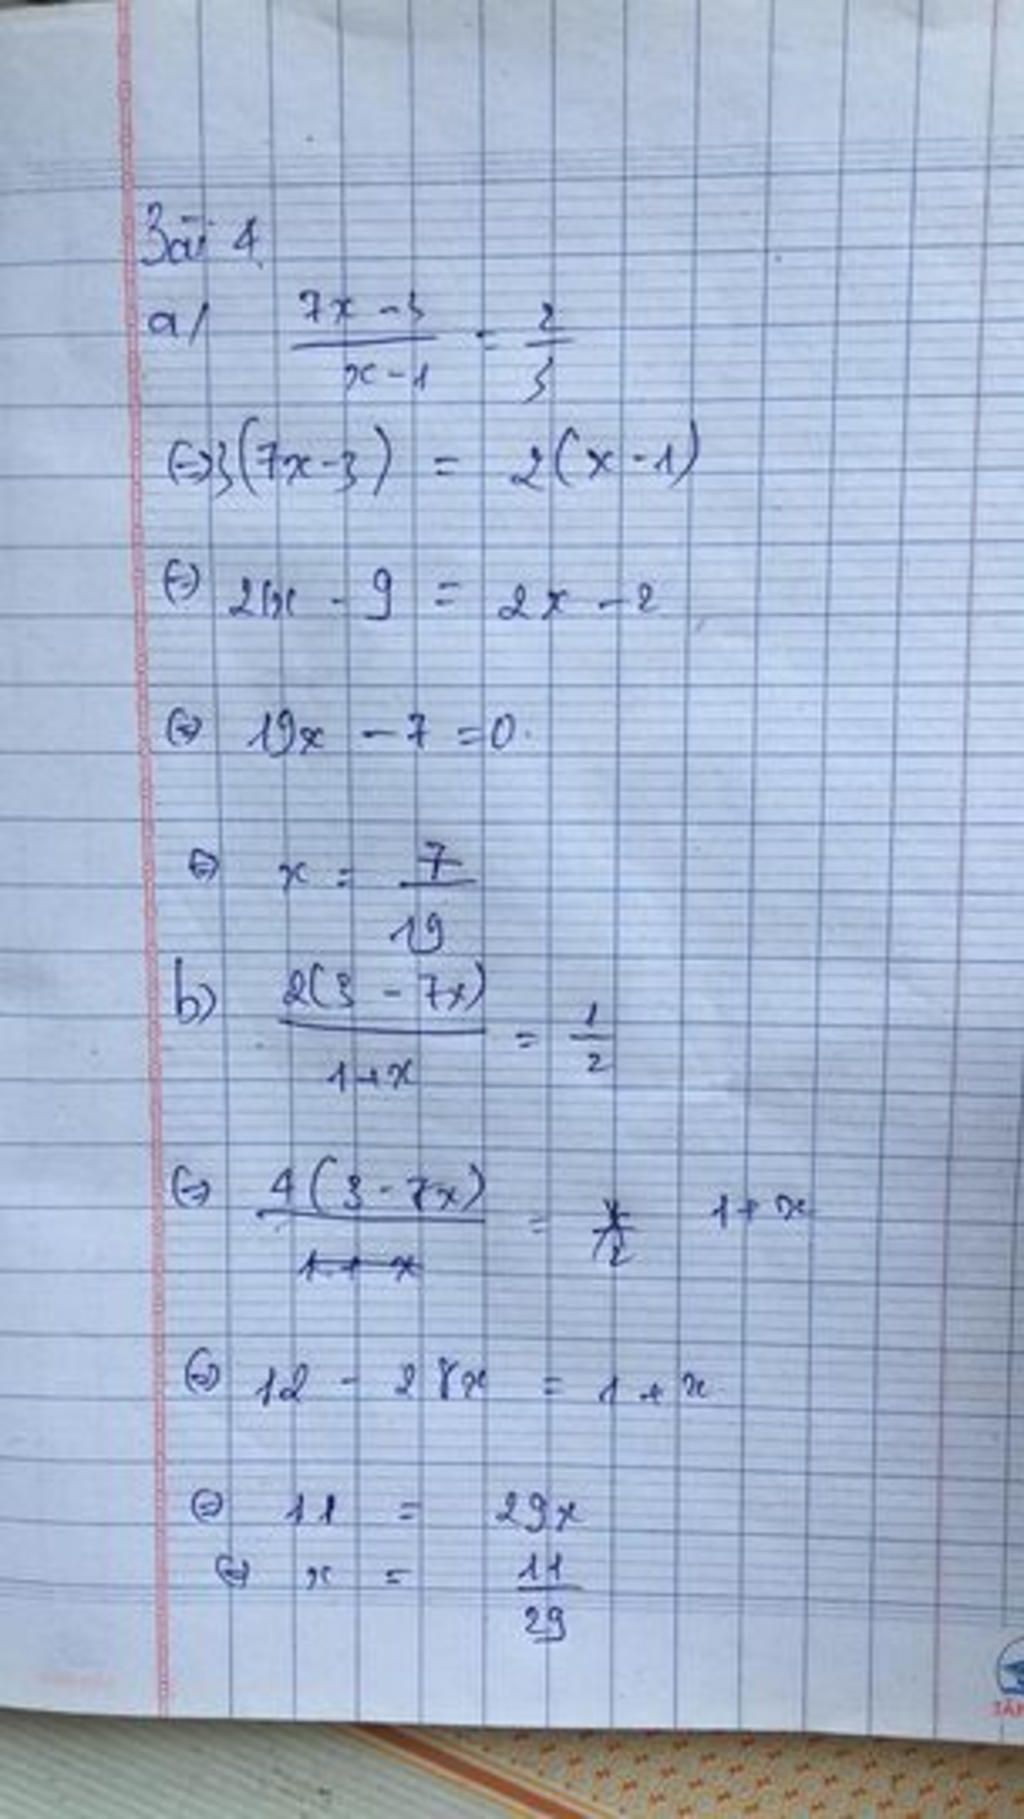 Bài 4
a/ \frac{7x - 3}{x - 1} = \frac{2}{3}
(=) 3(7x - 3) = 2(x - 1)
(=) 21x - 9 = 2x - 2
(=) 19x - 7 = 0.
(=) x = \frac{7}{19}
b) \frac{2(3 - 7x)}{1 + x} = \frac{1}{2}
(=) 4(3 - 7x) = 1 + x
(=) 12 - 28x = 1 + x
(=) 11 = 29x
(=) x = \frac{11}{29}